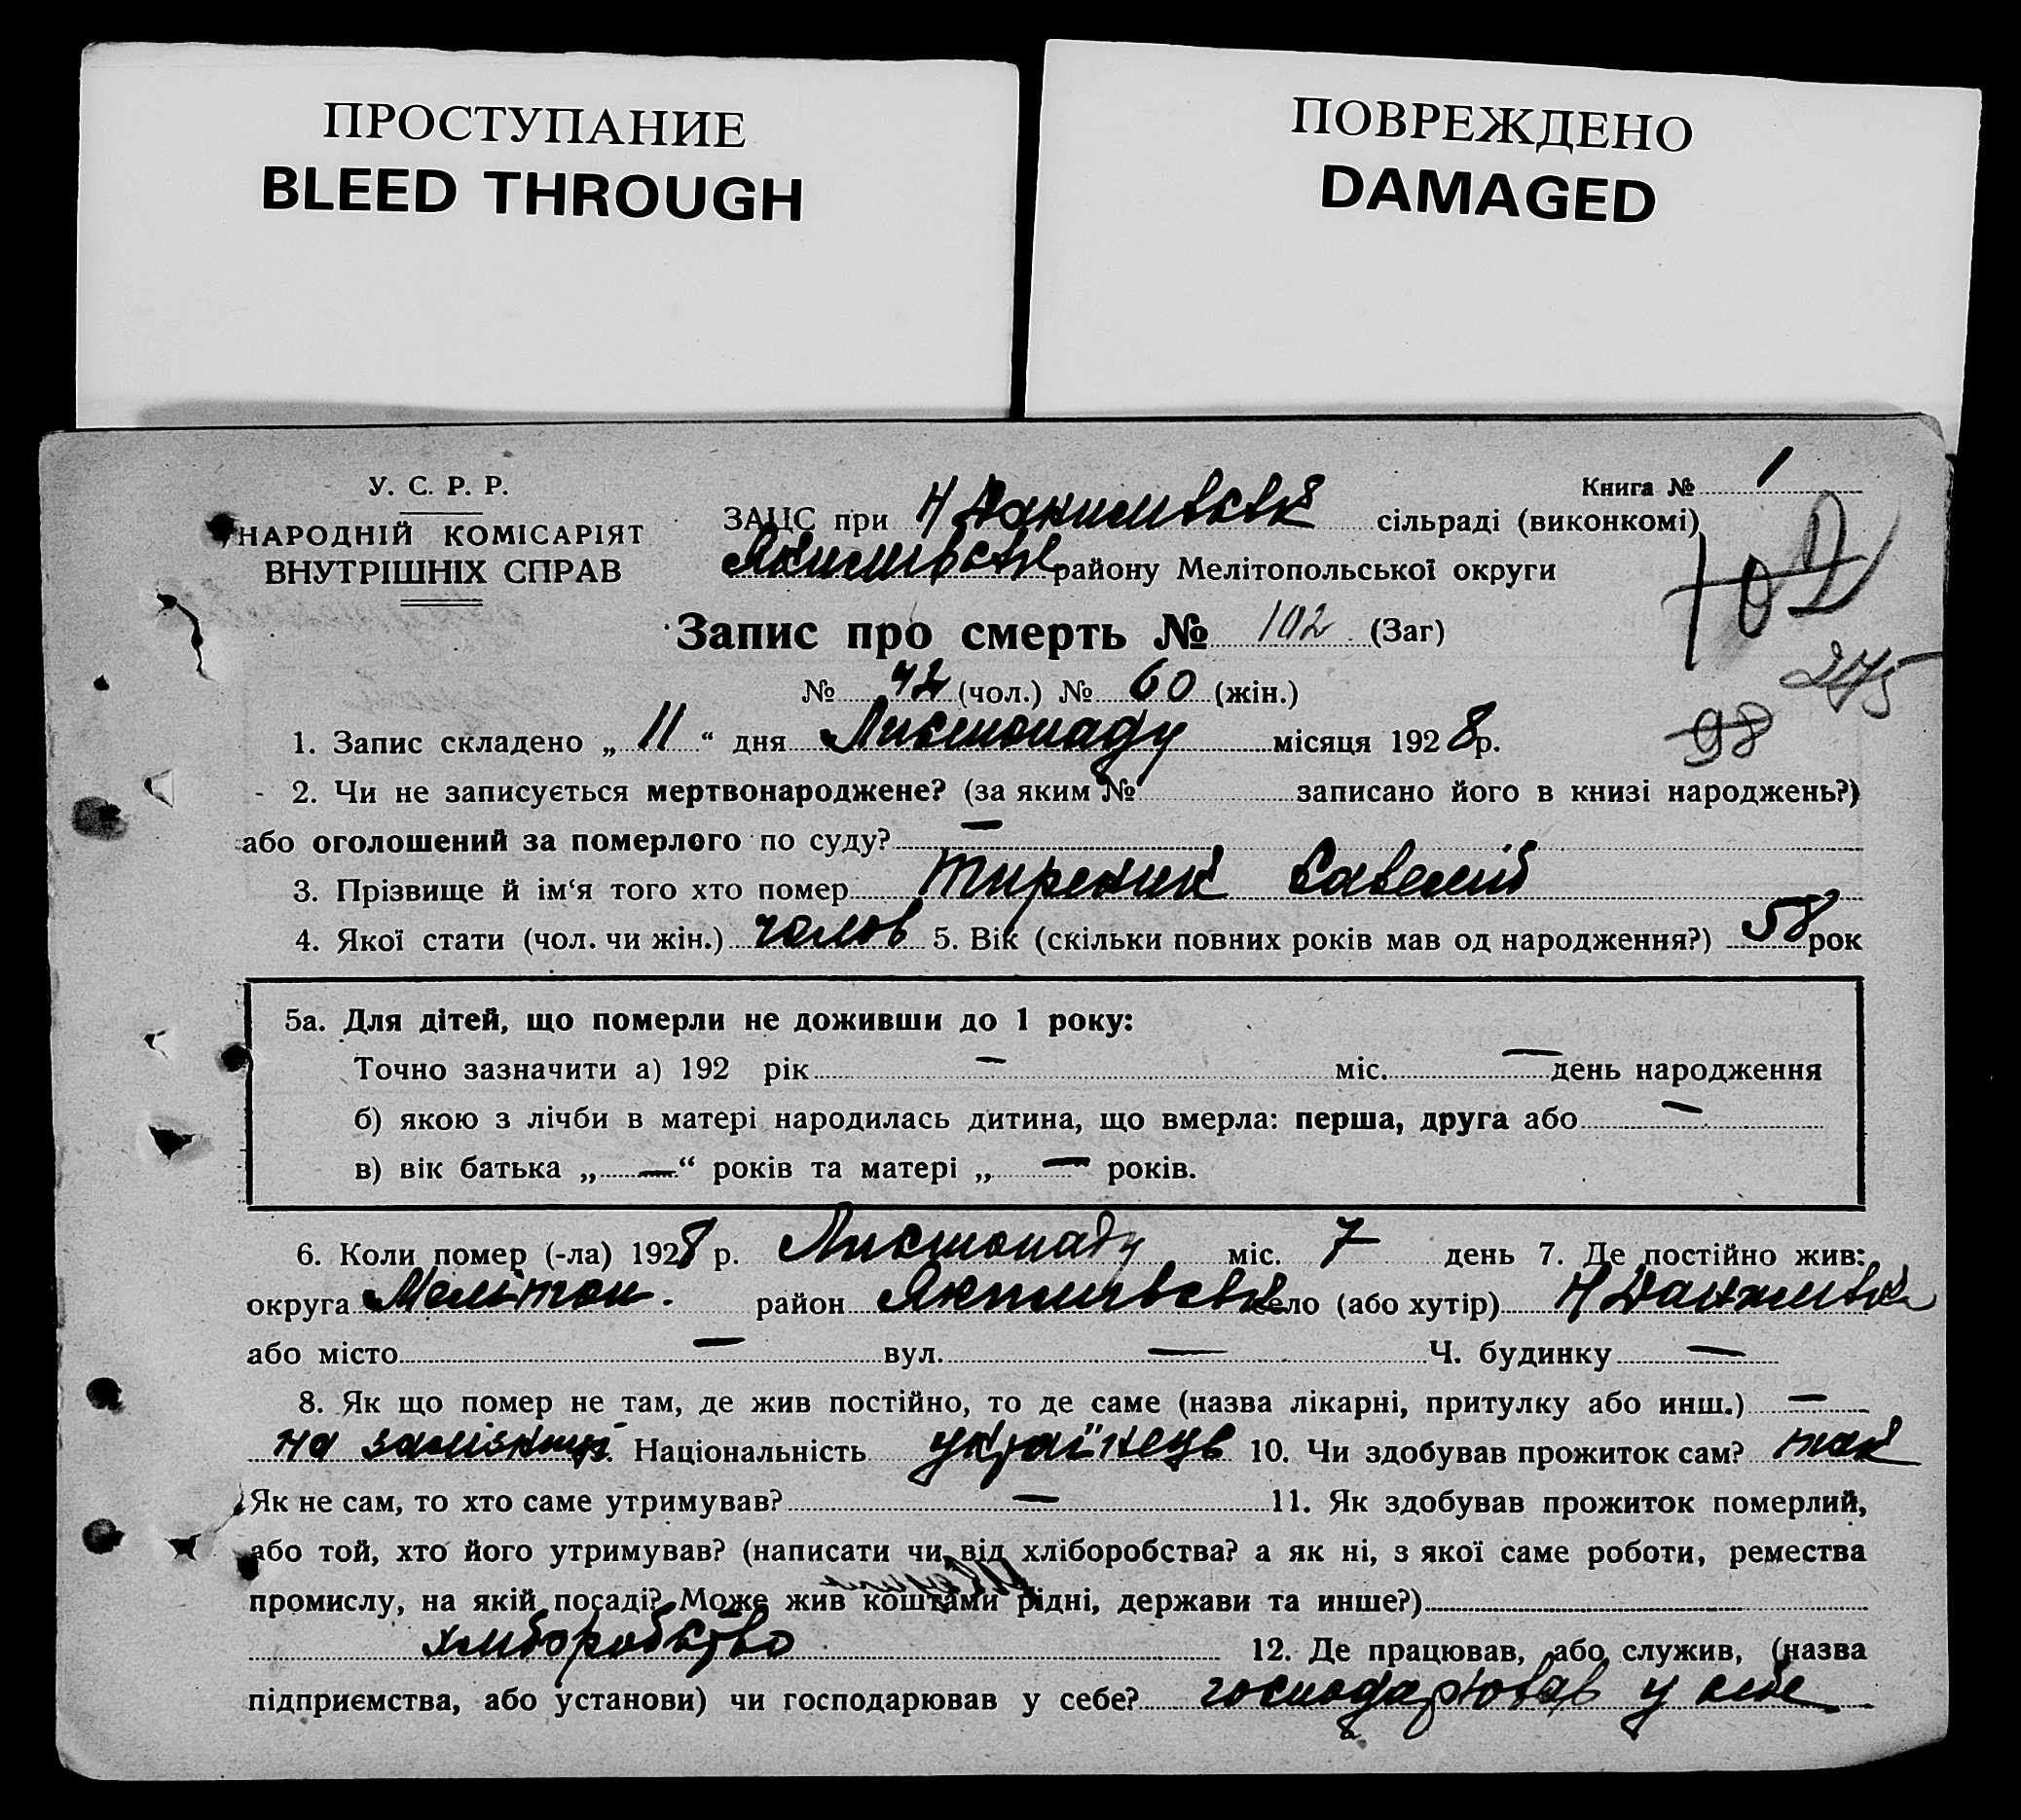 ПРОСТУПАНИЕ
BLEED THROUGH
ПОВРЕЖДЕНО
DAMAGED
У. С. Р. Р.
НАРОДНІЙ КОМІСАРІЯТ
ВНУТРІШНІХ СПРАВ
Книга № 1
ЗАЦС при Н Данилівській сільраді (виконкомі)
Якимівськ району Мелітопольської округи
102
Запис про смерть № 102 (Заг)
275
№ 42 (чол.) № 60 (жін.)
98
1. Запис складено „ 11 “ дня Листопаду місяця 1928 р.
2. Чи не записується мертвонароджене? (за яким № записано його в книзі народжень?)
або оголошений за померлого по суду? —
3. Прізвище й ім‘я того хто помер Савелій
4. Якої стати (чол. чи жін.) чолов 5. Вік (скільки повних років мав од народження?) 58 рок
5а. Для дітей, що померли не доживши до 1 року:
Точно зазначити а) 192 рік — міс. — день народження
б) якою з лічби в матері народилась дитина, що вмерла: перша, друга або —
в) вік батька „ — “ років та матері „ — років.
6. Коли помер (-ла) 1928 р. Листопаду міс. 7 день 7. Де постійно жив:
округа Мелітоп. район Якимівськ село (або хутір) Н Данилівка
або місто — вул. — Ч. будинку —
8. Як що помер не там, де жив постійно, то де саме (назва лікарні, притулку або инш.) —
на залізниці. Національність українець 10. Чи здобував прожиток сам? так
Як не сам, то хто саме утримував? — 11. Як здобував прожиток померлий,
або той, хто його утримував? (написати чи від хліборобства? а як ні, з якої саме роботи, ремества
промислу, на якій посаді? Може жив коштами рідні, держави та инше?)
хліборобство 12. Де працював, або служив, (назва
підприємства, або установи) чи господарював у себе? господарював у себе